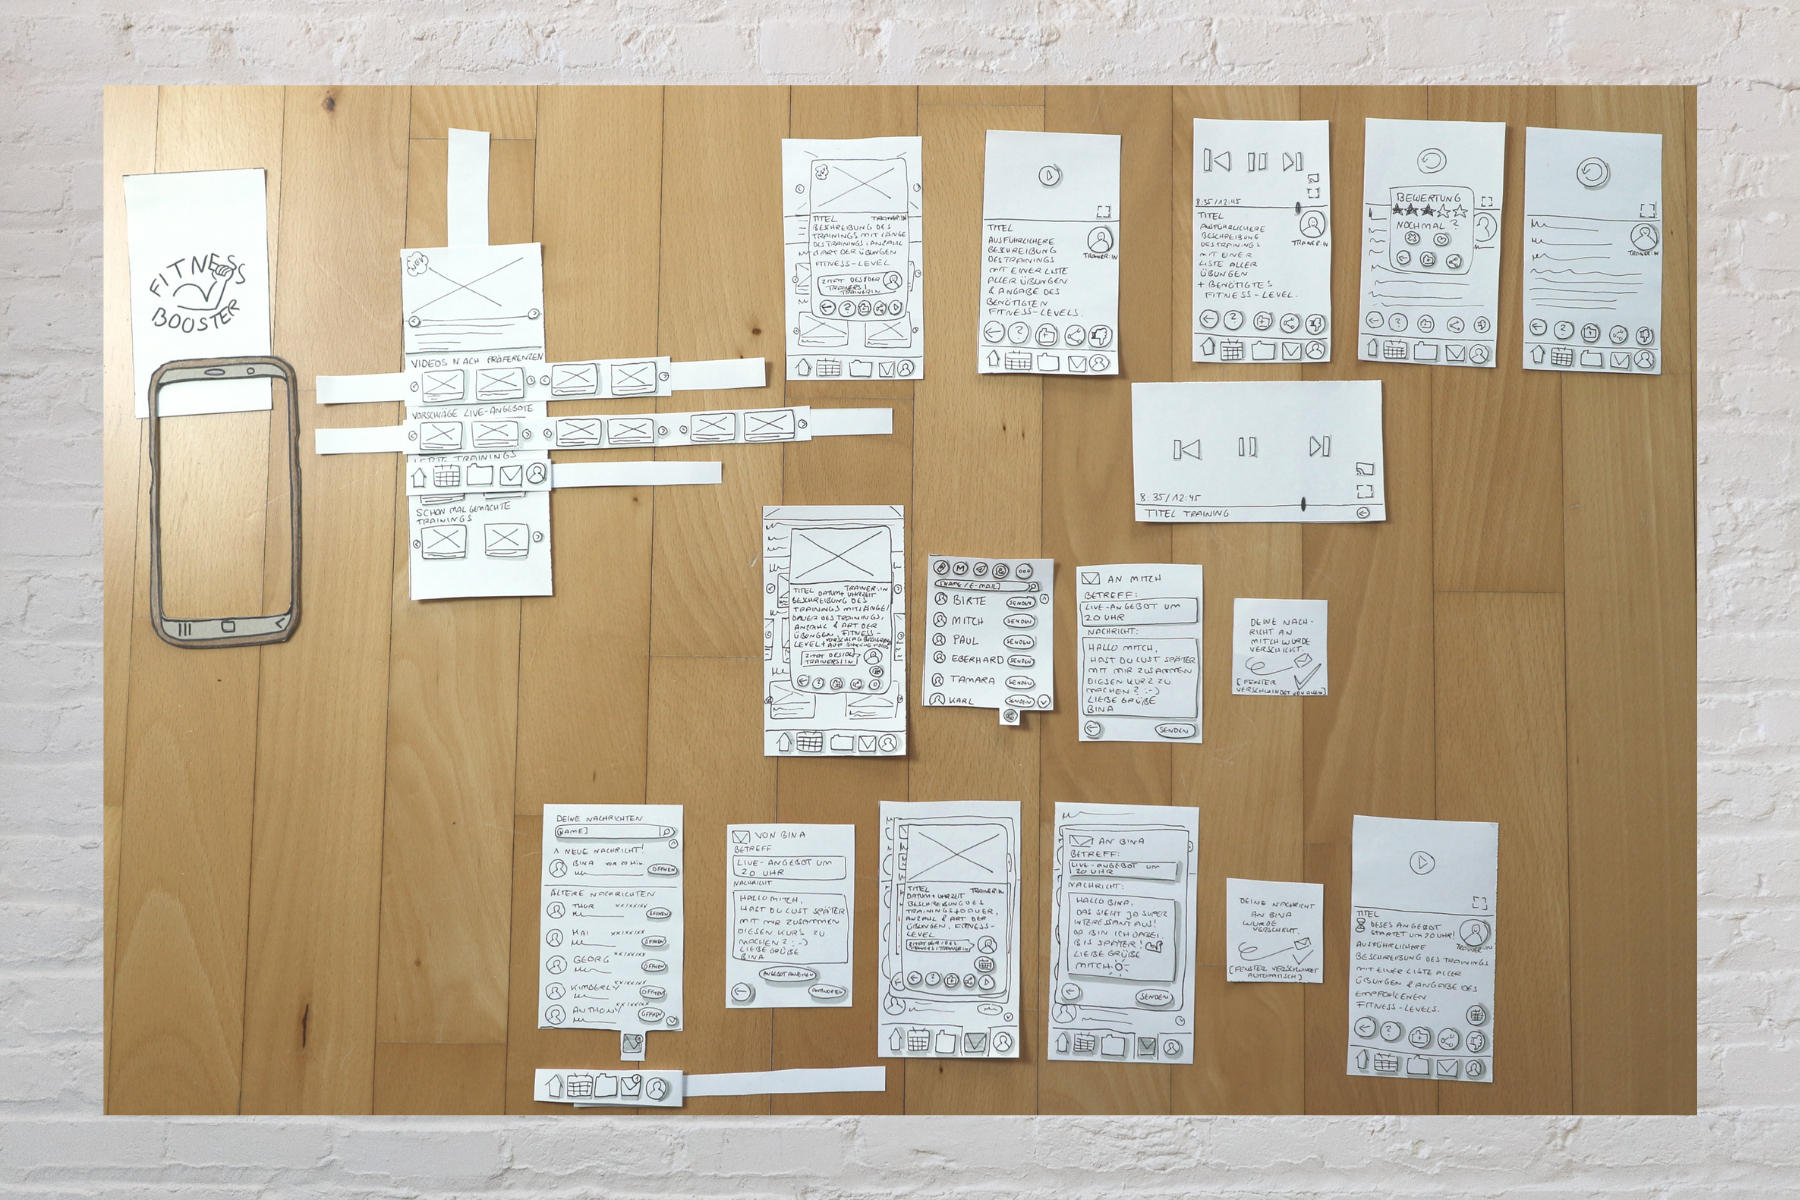 FITNESS
BOOSTER
NEU
VIDEOS NACH PRÄFERENZEN
VORSCHLÄGE LIVE-ANGEBOTE
TRAININGS
SCHON MAL GEMACHTE
TRAININGS
TITEL TRAINER:IN
BESCHREIBUNG DES
TRAININGS MIT LÄNGE
DES TRAININGS, ANZAHL
& ART DER ÜBUNGEN
FITNESS-LEVEL
ZITAT DES/DER
TRAINERS/
TRAINER:IN
?
TITEL
AUSFÜHRLICHERE
BESCHREIBUNG
DES TRAININGS
MIT EINER LISTE
ALLER ÜBUNGEN
& ANGABE DES
BENÖTIGTEN
FITNESS-LEVELS.
TRAINER:IN
?
8:35/12:45
TITEL
AUSFÜHRLICHERE
BESCHREIBUNG
DES TRAININGS
MIT EINER
LISTE ALLER
ÜBUNGEN
+ BENÖTIGTES
FITNESS-LEVEL.
TRAINER:IN
?
BEWERTUNG
NOCHMAL?
?
TRAINER:IN
?
8:35/12:45
TITEL TRAINING
TITEL DATUM+UHRZEIT TRAINER:IN
BESCHREIBUNG DES
TRAININGS MIT LÄNGE/
DAUER DES TRAININGS,
ANZAHL & ART DER
ÜBUNGEN, FITNESS-
ZITAT DES/DER
TRAINERS/IN
?
M
[NAME/E-MAIL]
BIRTE SENDEN
MITCH SENDEN
PAUL SENDEN
EBERHARD SENDEN
TAMARA SENDEN
KARL SENDEN
AN MITCH
BETREFF:
LIVE-ANGEBOT UM
20 UHR
NACHRICHT:
HALLO MITCH,
HAST DU LUST SPÄTER
MIT MIR ZUSAMMEN
DIESEN KURS ZU
MACHEN? :-)
LIEBE GRÜßE
BINA
SENDEN
DEINE NACH-
RICHT AN
MITCH WURDE
VERSCHICKT.
[FENSTER
VERSCHWINDET
DEINE NACHRICHTEN
[NAME]
1 NEUE NACHRICHT!
BINA VOR 20 MIN. ÖFFNEN
ÄLTERE NACHRICHTEN
THUR XX/XX/XX ÖFFNEN
MAI XX/XX/XX ÖFFNEN
GEORG XX/XX/XX ÖFFNEN
KIMBERLY XX/XX/XX ÖFFNEN
ANTHONY XX/XX/XX ÖFFNEN
VON BINA
BETREFF
LIVE-ANGEBOT UM
20 UHR
NACHRICHT
HALLO MITCH,
HAST DU LUST SPÄTER
MIT MIR ZUSAMMEN
DIESEN KURS ZU
MACHEN? :-)
LIEBE GRÜßE
BINA
ANGEBOT ANSEHEN
ANTWORTEN
TITEL TRAINER:IN
DATUM+UHRZEIT
BESCHREIBUNG DES
TRAININGS+DAUER,
ANZAHL & ART DER
ÜBUNGEN, FITNESS-
LEVEL
?
AN BINA
BETREFF:
LIVE-ANGEBOT UM
20 UHR
NACHRICHT:
HALLO BINA,
DAS SIEHT JO SUPER
INTERESSANT AUS!
DA BIN ICH DABEI.
BIS SPÄTER!
LIEBE GRÜßE
MITCH
SENDEN
DEINE NACHRICHT
AN BINA
WURDE
VERSCHICKT.
[FENSTER VERSCHWINDET
AUTOMATISCH]
TITEL
DIESES ANGEBOT
STARTET UM 20 UHR!
TRAINER:IN
AUSFÜHRLICHERE
BESCHREIBUNG DES TRAININGS
MIT EINER LISTE ALLER
ÜBUNGEN & ANGABE DES
EMPFOHLENEN
FITNESS-LEVELS.
?